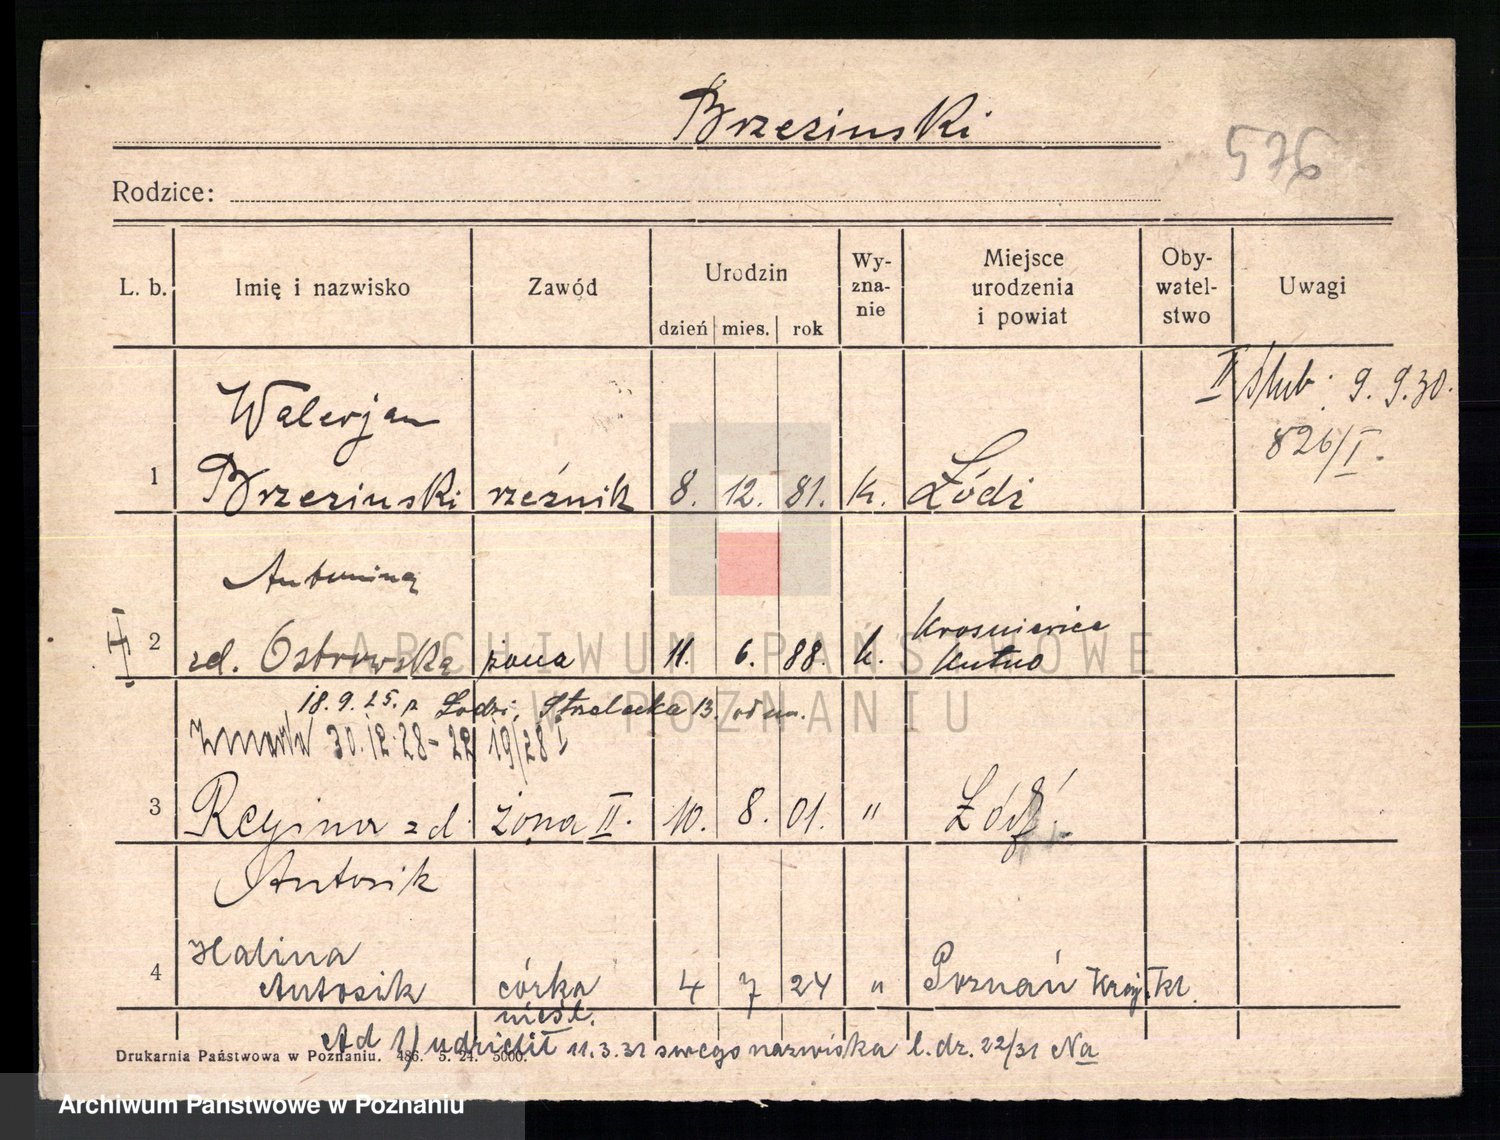 Brzezinski
576
Rodzice:
L. b. Imię i nazwisko Zawód Urodzin dzień mies. rok Wy-zna-nie Miejsce urodzenia i powiat Oby-watel-stwo Uwagi
II ślub: 9. 9.30.
826/I.
Walerjan
1 Brzezinski rzeźnik 8. 12. 81. k. Łódź
Antonina
2 zd. Ostrowska żona 11. 6. 88. k. Krosniewice Kutno
18.9.25. z Łodzi, Strzelecka 13.
Zmarła 30.12.28 - 22 19/28 I
3 Regina zd. żona II. 10. 8. 01. " Łódź
Antosik
Halina
4 Antosik córka 4 7 24 " Poznań
nieśl.
Ad 1/ udzielił 11.3.31 swego nazwiska l.dz. 22/31 Na
Drukarnia Państwowa w Poznaniu. 486. 5. 24. 5000.
ARCHIWUM PAŃSTWOWE
W POZNANIU
Archiwum Państwowe w Poznaniu